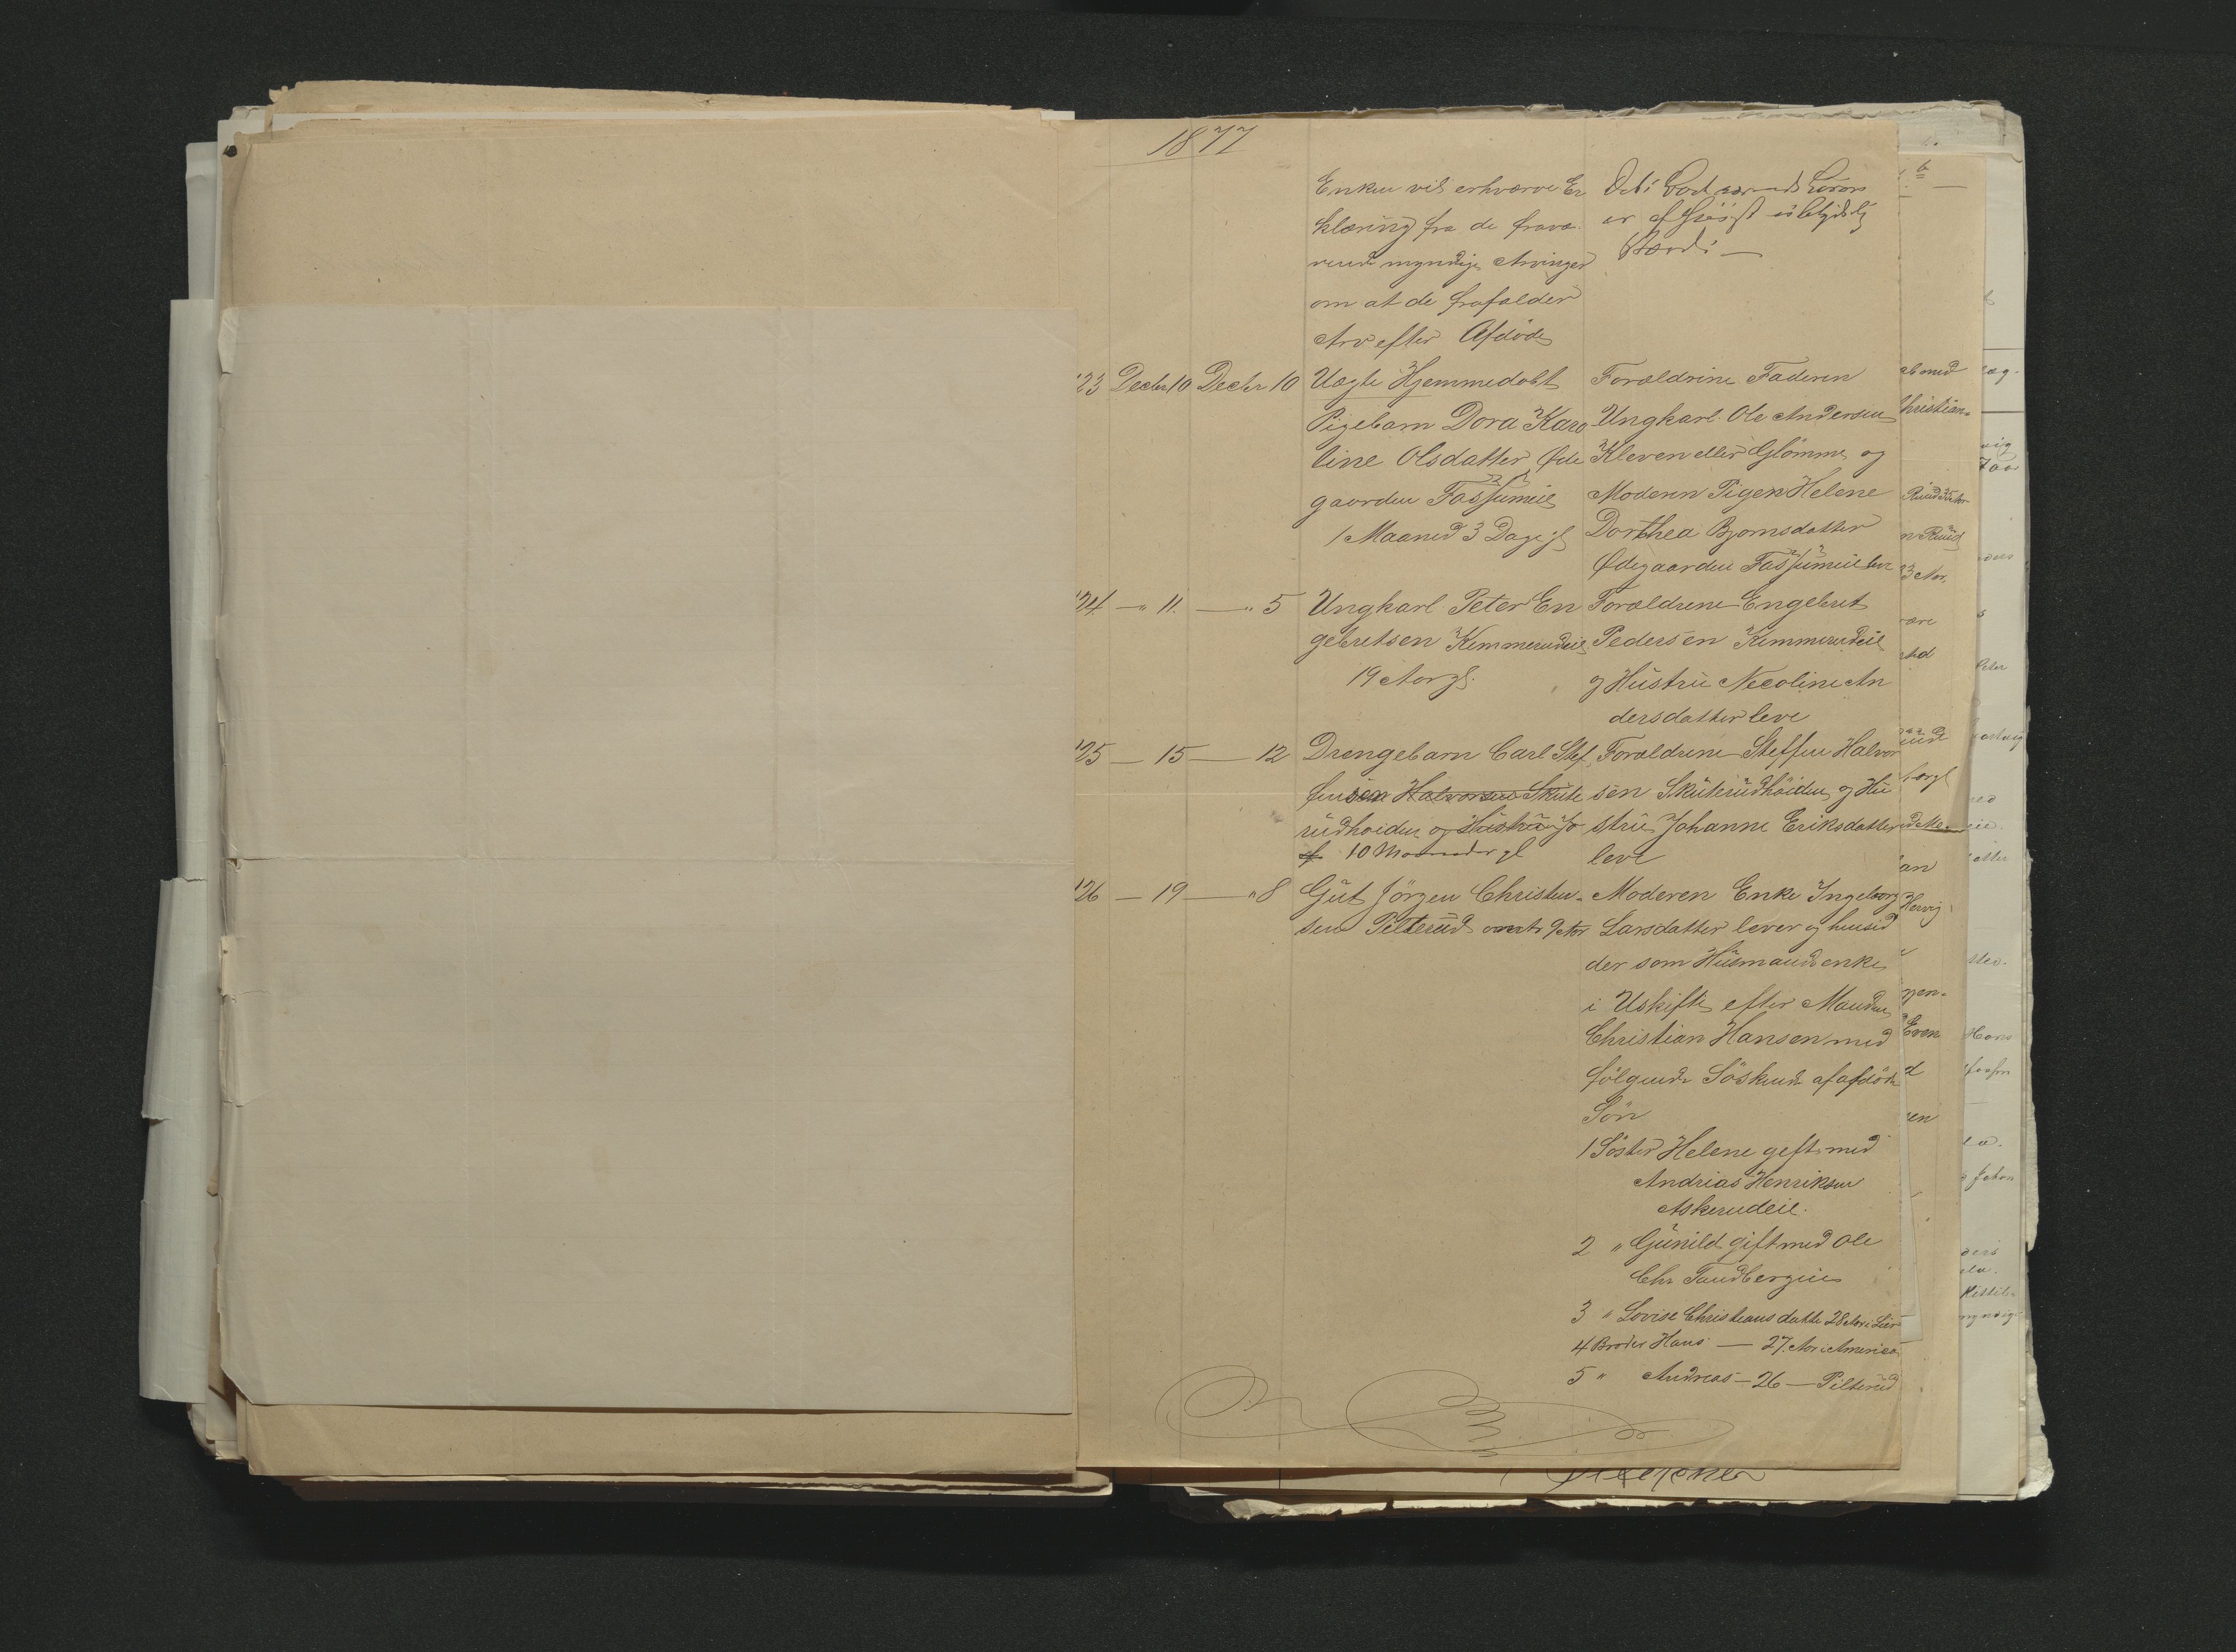 1877
Enken vil erhværve Er
klæring fra de fravæ
rende myndige Arvinger
om at de frafalder
Arv efter Afdöde
er af
Værdi —
23 Decbr 10 Decbr 10 Uægte Hjemmedobt
Pigebarn Dora Karo
line Olsdatter Öde
gaarden Fossumeie
1 Maaned 3 Dage gl
Forældrine Faderen
Ungkarl Ole Andersen
Kleven eller Glömme og
Moderen Pigen Helene
Dorthea Bjornsdatter
Ødegaarden Fossumeie leve
24 — " 11. — " 5 Ungkarl Peter En
gebretsen Kemmerudeie
19 Aar gl.
Forældrene Engebret
Pedersen Kemmerudeie
og Hustrü Necoline An
dersdatter leve
25 — 15 — 12 Drengebarn Carl Stef
fensen Halvorsen Sküte
rüdhoiden og Hüstrü Jo
10 Maaneder gl
Forældrene Steffen Halvor
sen Sküterüdhöiden og Hü
strü Johanne Eriksdatter
leve
26 — 19 — " 8 Güt Jörgen Christen-
sen Pilterüd
Moderen Enke Ingeborg
Larsdatter lever og hensid
der som Hüsmandsenke
i Uskifte efter Manden
Christian Hansen med
fölgende Söskende af afdöde
Sön
1 Söster Helene geft med
Andrias Henriksen
Askerudeie.
2 " Günild gift med Ole
Chr Tandbergeie
3 " Lovise Christiansdatter 28 Aar i Lier
4 Broder Hans — 27. Aar i America
5 " Andreas — 26 — Pilterüd